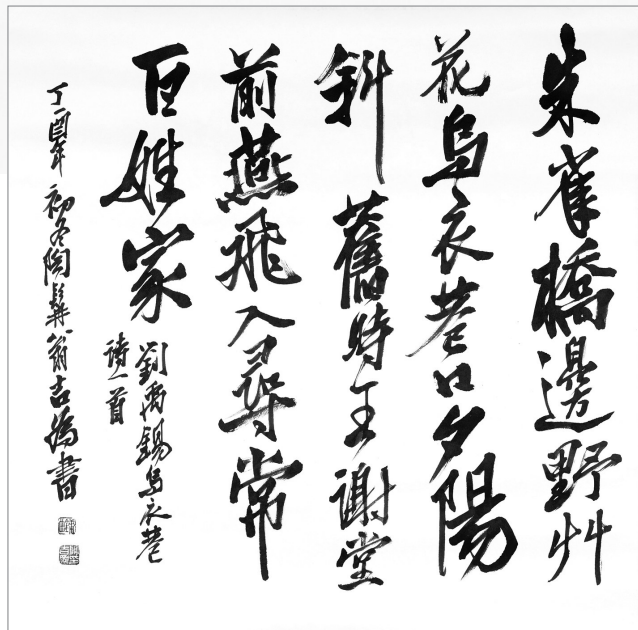 朱雀橋邊野艸
花烏衣巷口夕陽
斜舊時王謝堂
前燕飛入尋常
百姓家
劉禹錫烏衣巷
詩一首
丁酉年初冬陶髯翁吉為書